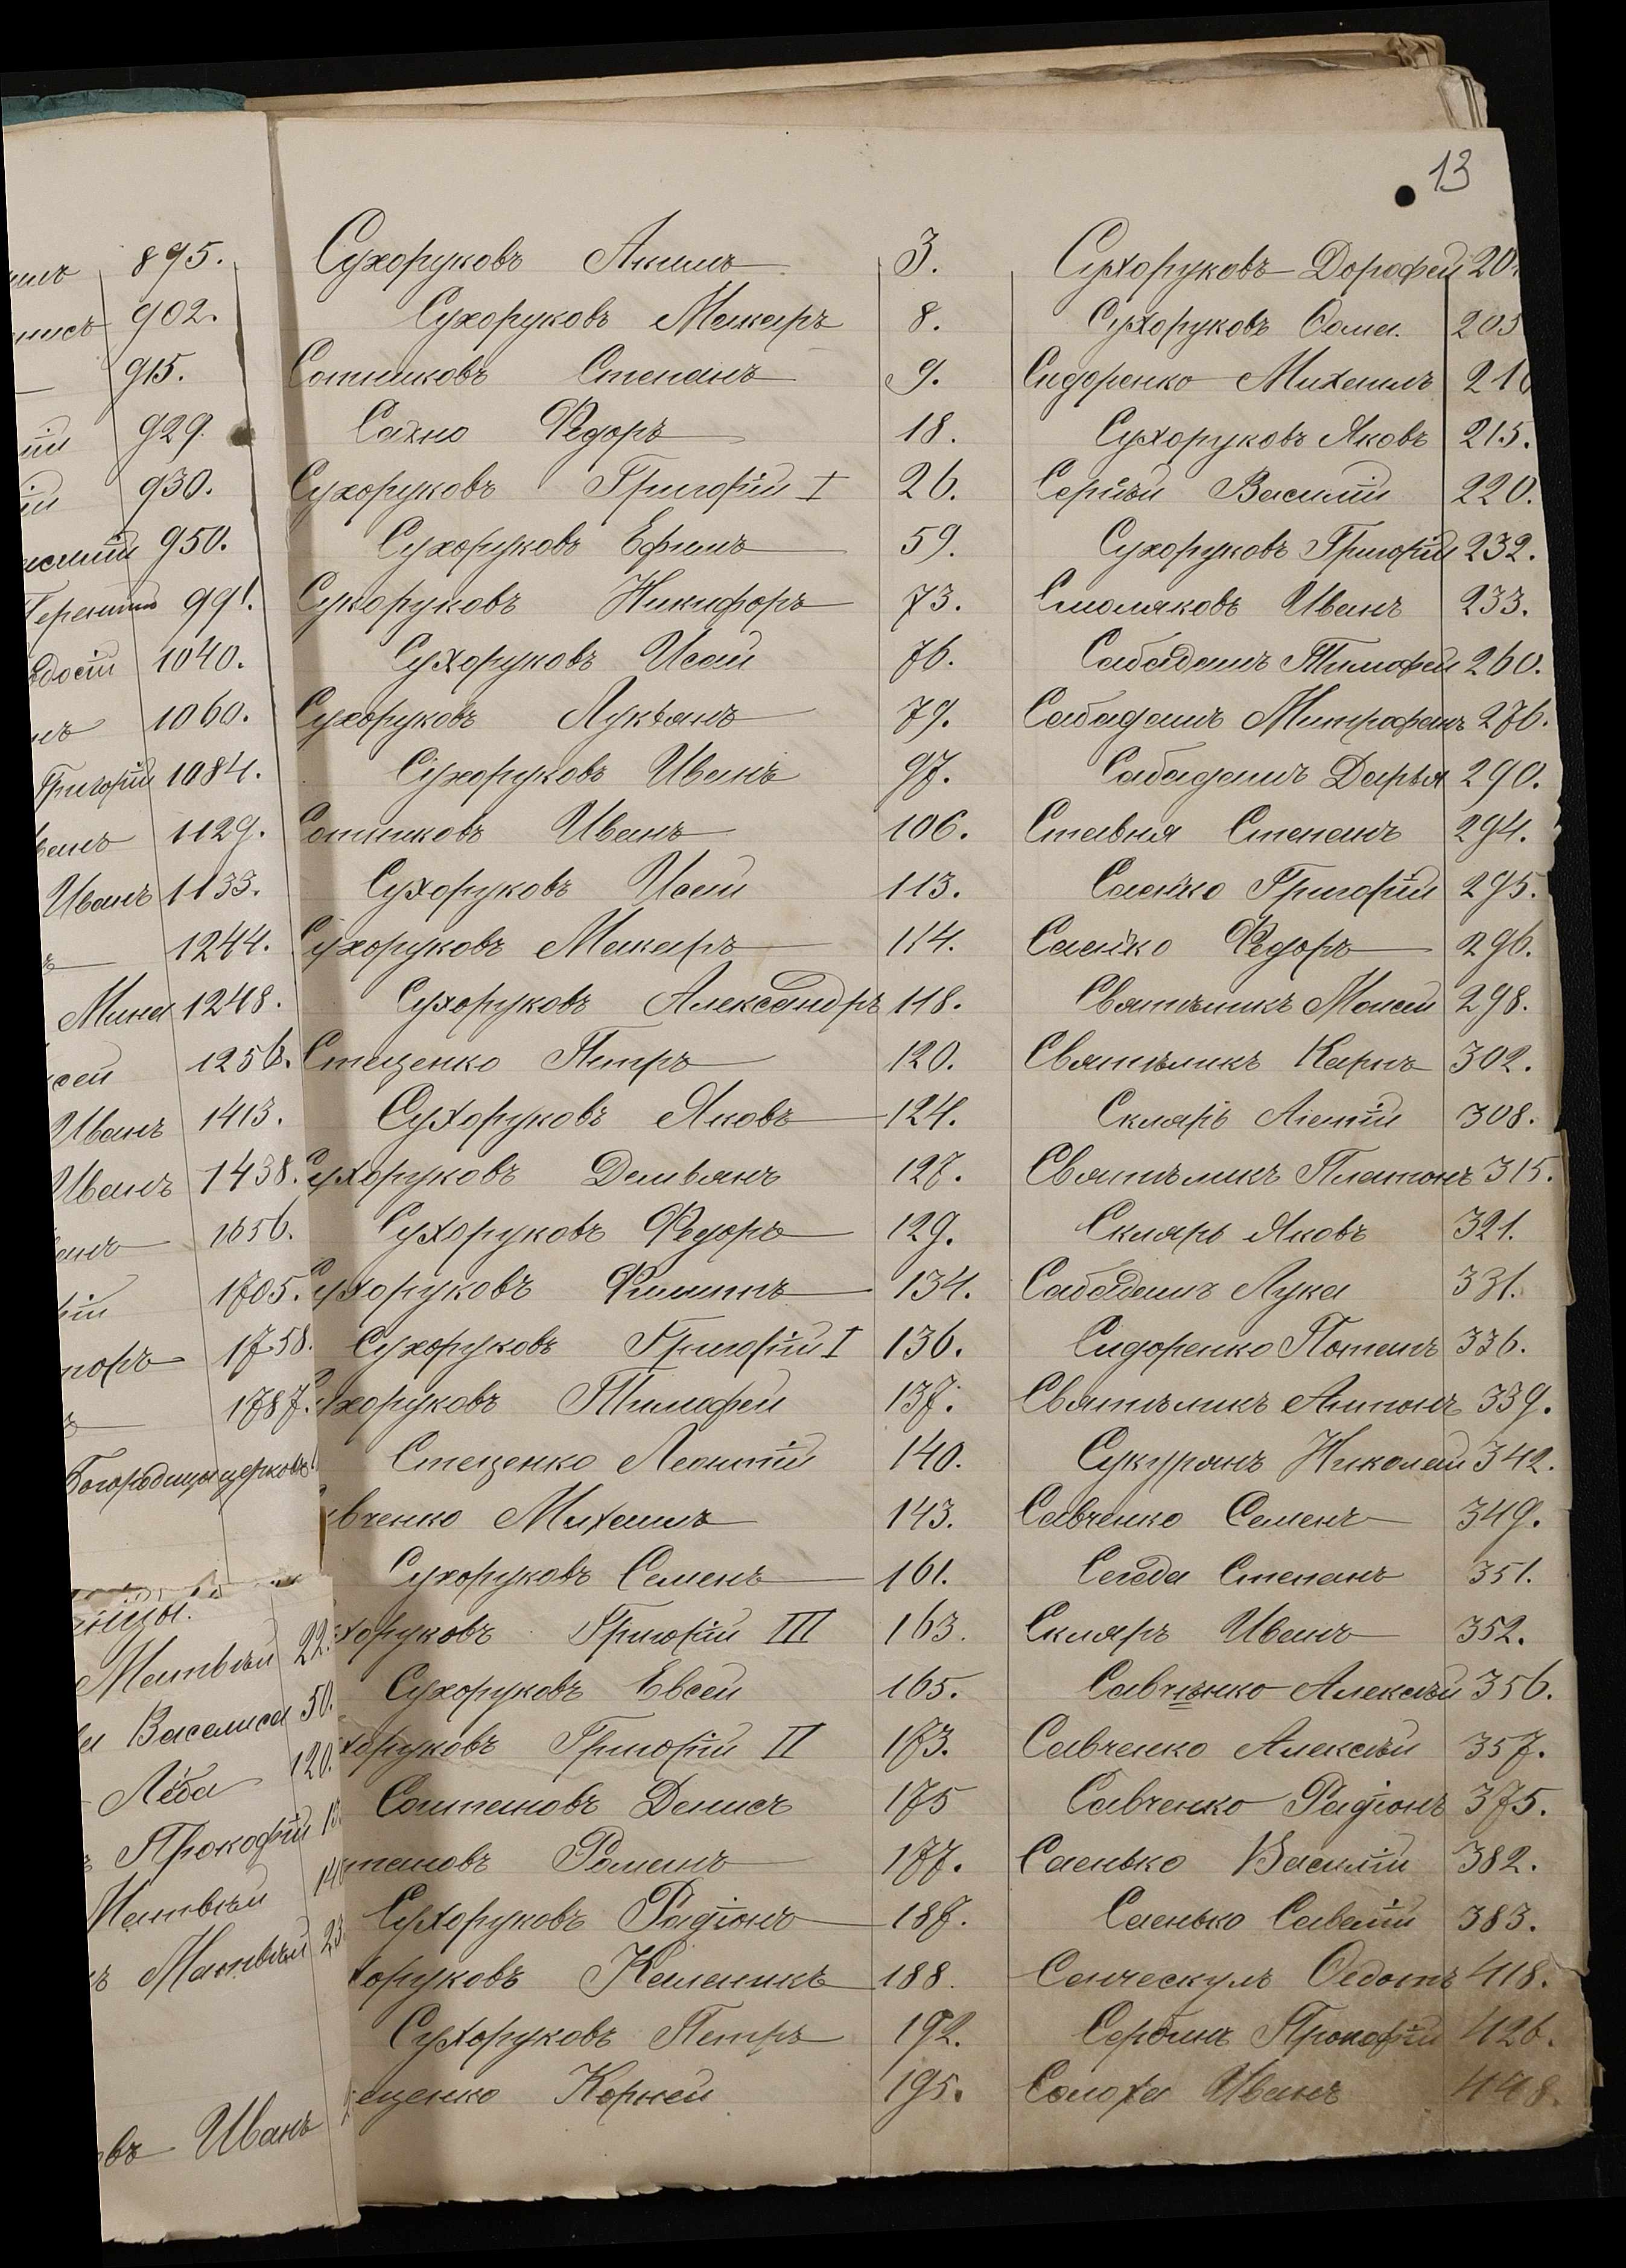 13
895.
902.
915.
929.
930.
950.
991.
1040.
1060.
Григорій 1084.
1129.
Иванъ 1133.
1244.
Мина 1248.
1256.
Иванъ 1413.
Иванъ 1438.
1656.
1705.
1758.
1787.
Матвѣй 22.
Василиса 50.
120.
Прокофій
Матвѣй
Матвѣй
Иванъ
Сухоруковъ Акимъ 3.
Сухоруковъ Макаръ 8.
Сотниковъ Степанъ 9.
Сахно Федоръ 18.
Сухоруковъ Григорій I 26.
Сухоруковъ Ефимъ 59.
Сухоруковъ Никифоръ 73.
Сухоруковъ Исай 76.
Сухоруковъ Лукьянъ 79.
Сухоруковъ Иванъ 97.
Сотниковъ Иванъ 106.
Сухоруковъ Исай 113.
Сухоруковъ Макаръ 114.
Сухоруковъ Александръ 118.
Стеценко Петръ 120.
Сухоруковъ Яковъ 124.
Сухоруковъ Демьянъ 127.
Сухоруковъ Федоръ 129.
Сухоруковъ Филиппъ 134.
Сухоруковъ Григорій I 136.
Сухоруковъ Тимофей 137.
Стеценко Леонтій 140.
вченко Михаилъ 143.
Сухоруковъ Семенъ 161.
хоруковъ Григорій III 163.
Сухоруковъ Евсей 165.
хоруковъ Григорій II 173.
Солтановъ Денисъ 175
тановъ Романъ 177.
Сухоруковъ Радіонъ 187.
хоруковъ Каленикъ 188.
Сухоруковъ Петръ 192.
еценко Корней 195.
Сухоруковъ Дорофей 20
Сухоруковъ Ѳома. 205
Сидоренко Михаилъ 210
Сухоруковъ Яковъ 215.
Сѣрый Василій 220.
Сухоруковъ Григорій 232.
Смоляковъ Иванъ 233.
Сабадашъ Тимофей 260.
Сабадашъ Митрофанъ 276.
Сабадашъ Дарья 290.
Ставня Степанъ 294.
Саенко Григорій 295.
Саенко Федоръ 296.
Святѣликъ Моисей 298.
Святѣликъ Карпъ 302.
Скляръ 308.
Святѣликъ Платонъ 315.
Скляръ Яковъ 321.
Сабадашъ Лука 331.
Сидоренко Потапъ 336.
Святѣликъ Антонъ 339.
Сукурянъ Николай 342.
Савченко Семенъ 349.
Сегеда Степанъ 351.
Скляръ Иванъ 352.
Савченко Алексѣй 356.
Савченко Алексѣй 357.
Савченко Радіонъ 375.
Саенько Василій 382.
Саенько Саватій 383.
Сенческулъ Ѳедотъ 418.
Сербинъ Прокофій 426.
Солоха Иванъ 448.